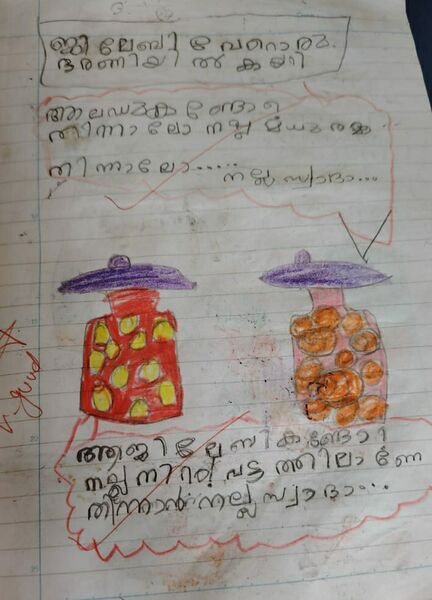 ജിലേബി വേറൊരു
ഭരണിയിൽ കയറി
ആ ലഡുക്കണ്ടോ
തിന്നാലോ നല്ല മധുരമ
തിന്നാലോ......
നല്ല സ്വാദാ...
ആ ജിലേബികണ്ടോ
നല്ല നിറം വട്ടത്തിലാണേ
തിന്നാൻ നല്ല സ്വാദാ...